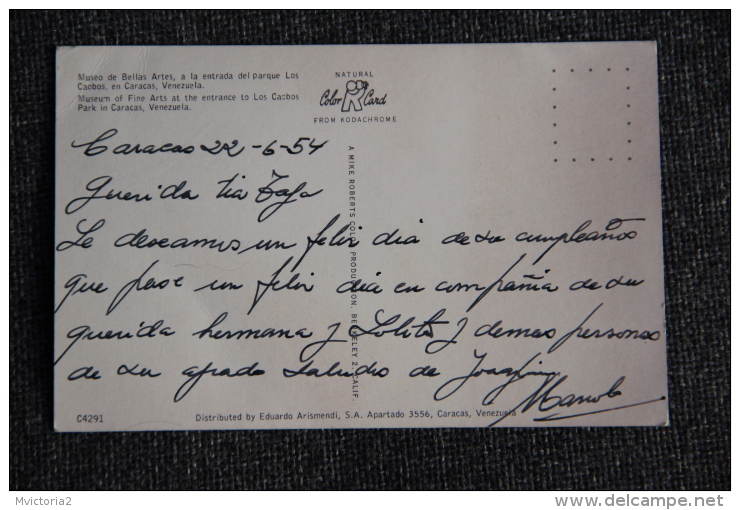 Museo de Bellas Artes, a la entrada del parque Los
Caobos, en Caracas, Venezuela.
Museum of Fine Arts at the entrance to Los Caobos
Park in Caracas, Venezuela.
NATURAL
Color Card
FROM KODACHROME
A MIKE ROBERTS COLOR PRODUCTION, BERKELEY 2, CALIF.
Caracas 22-6-54
Querida tia
Le deseamos un feliz dia de su cumpleaños
que pase un feliz dia en compañia de su
querida hermana y Lolita y demas personas
de su agrado saludos de Joaquin
Manolo
C4291
Distributed by Eduardo Arismendi, S.A. Apartado 3556, Caracas, Venezuela
Mvictoria2
www.delcampe.net